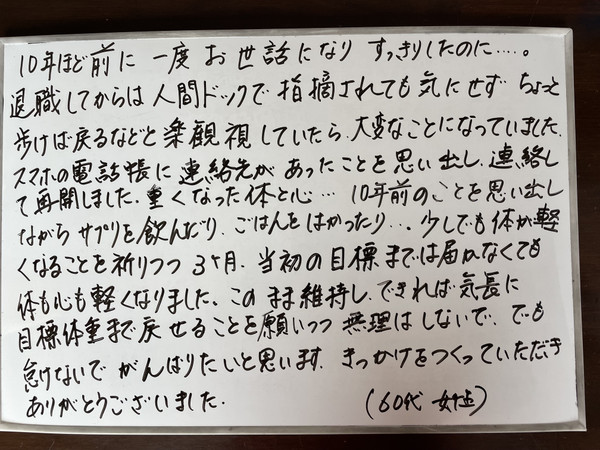 10年ほど前に 一度 お世話になり すっきりしたのに….。
退職してからは 人間ドックで 指摘されても 気にせず ちょっと
歩けば 戻るなどと 楽観視していたら、大変なことになっていました。
スマホの電話帳に 連絡先が あったことを 思い出し、連絡し
て再開しました。重くなった 体と心… 10年前のことを 思い出し
ながら サプリを 飲んだり、ごはんを はかったり…。少しでも 体が軽
くなることを 祈りつつ 3ヶ月、当初の目標までは届かなくても
体も心も 軽くなりました。この まま維持し、できれば 気長に
目標体重まで 戻せることを 願いつつ 無理は しないで、でも
怠けないで がんばりたいと 思います。きっかけを つくっていただき
ありがとうございました。 (60代 女性)